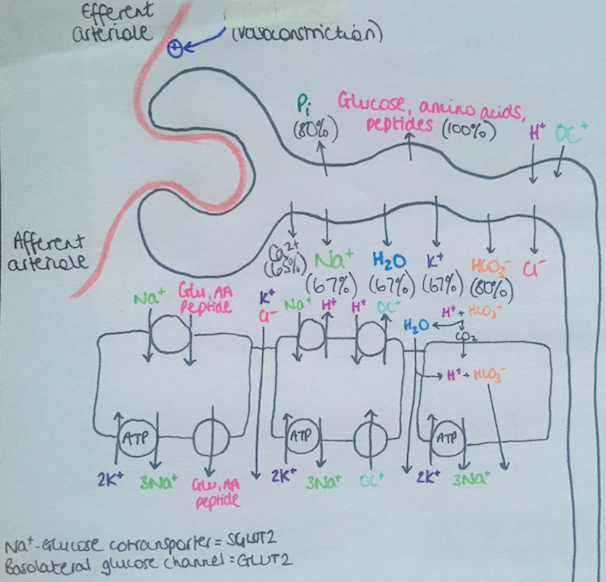 Efferent
arteriole
+
(vasoconstriction)
Pi
(80%)
Glucose, amino acids,
peptides (100%)
H⁺ OC⁺
Afferent
arteriole
Ca²⁺
(65%)
Na⁺
(67%)
H₂O
(67%)
K⁺
(67%)
HCO₃⁻
(80%)
Cl⁻
Na⁺ Glu, AA
Peptide
K⁺
Cl⁻
Na⁺ H⁺ H⁺ OC⁺
H₂O
H⁺ + HCO₃⁻
CO₂
H⁺ + HCO₃⁻
ATP ATP ATP
2K⁺ 3Na⁺ Glu, AA
Peptide
2K⁺ 3Na⁺ OC⁺ 2K⁺ 3Na⁺
Na⁺-Glucose cotransporter = SGLUT2
Basolateral glucose channel = GLUT2